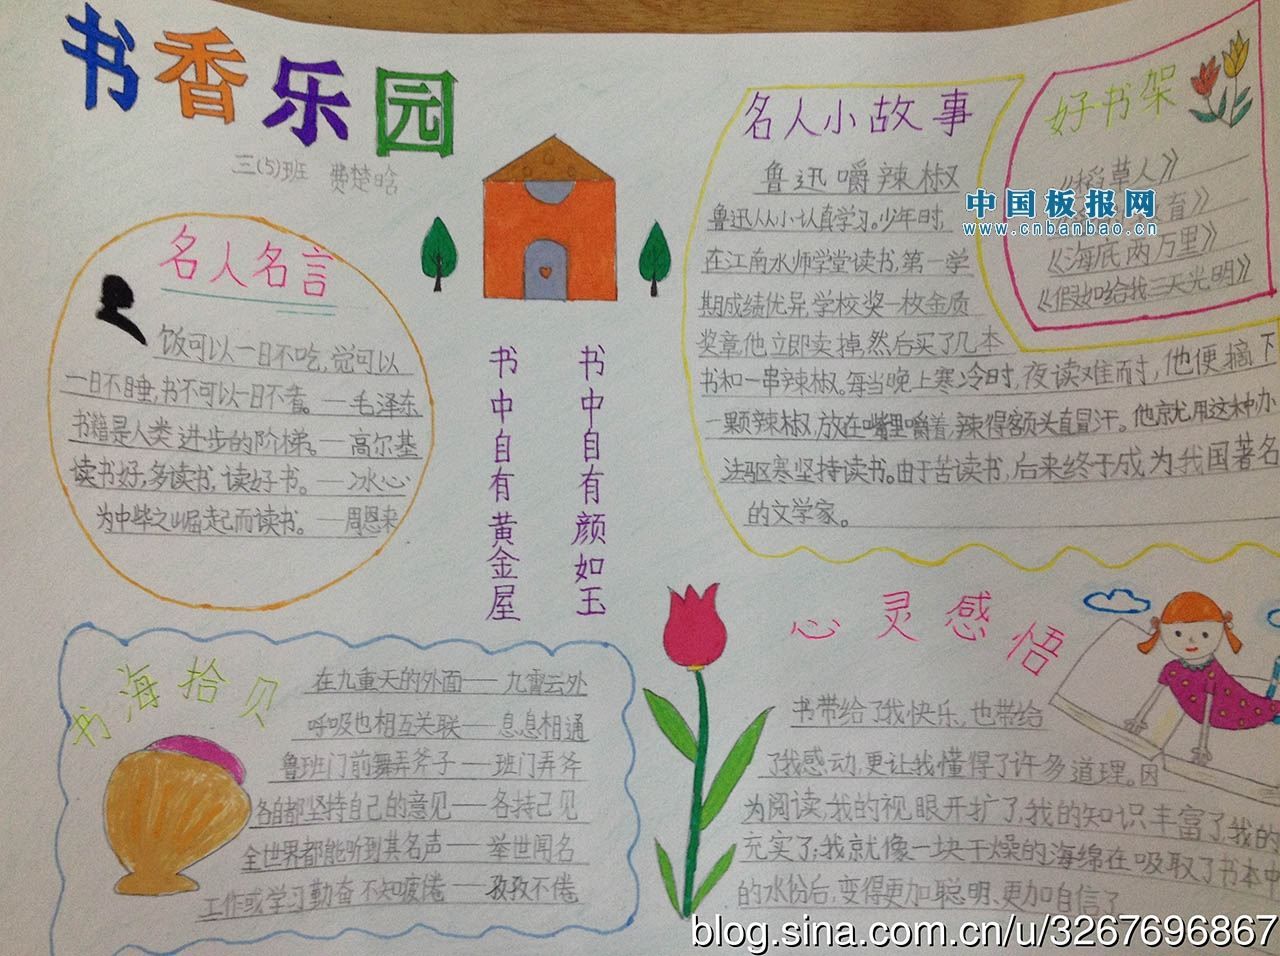 书香乐园
三(5)班 费楚晗
名人名言
饭可以一日不吃,觉可以
一日不睡,书不可以一日不看。—毛泽东
书籍是人类进步的阶梯。—高尔基
读书好,多读书,读好书。—冰心
为中华之崛起而读书。—周恩来
书中自有颜如玉
书中自有黄金屋
名人小故事
鲁迅嚼辣椒
鲁迅从小认真学习。少年时,
在江南水师学堂读书,第一学
期成绩优异,学校奖一枚金质
奖章,他立即卖掉,然后买了几本
书和一串辣椒。每当晚上寒冷时,夜读难耐,他便摘下
一颗辣椒,放在嘴里嚼着,辣得额头直冒汗。他就用这种办
法驱寒坚持读书。由于苦读书,后来终于成为我国著名
的文学家。
好书架
《稻草人》
育》
《海底两万里》
《假如给我三天光明》
中国板报网
www.cnbanbao.cn
书海拾贝
在九重天的外面——九霄云外
呼吸也相互关联——息息相通
鲁班门前舞弄斧子——班门弄斧
各自都坚持自己的意见——各持己见
全世界都能听到其名声——举世闻名
工作或学习勤奋不知疲倦——孜孜不倦
心灵感悟
书带给了我快乐,也带给
了我感动,更让我懂得了许多道理。因
为阅读,我的视眼开扩了,我的知识丰富了,我的
充实了;我就像一块干燥的海绵在吸取了书本中
的水份后,变得更加聪明、更加自信了
blog.sina.com.cn/u/3267696867